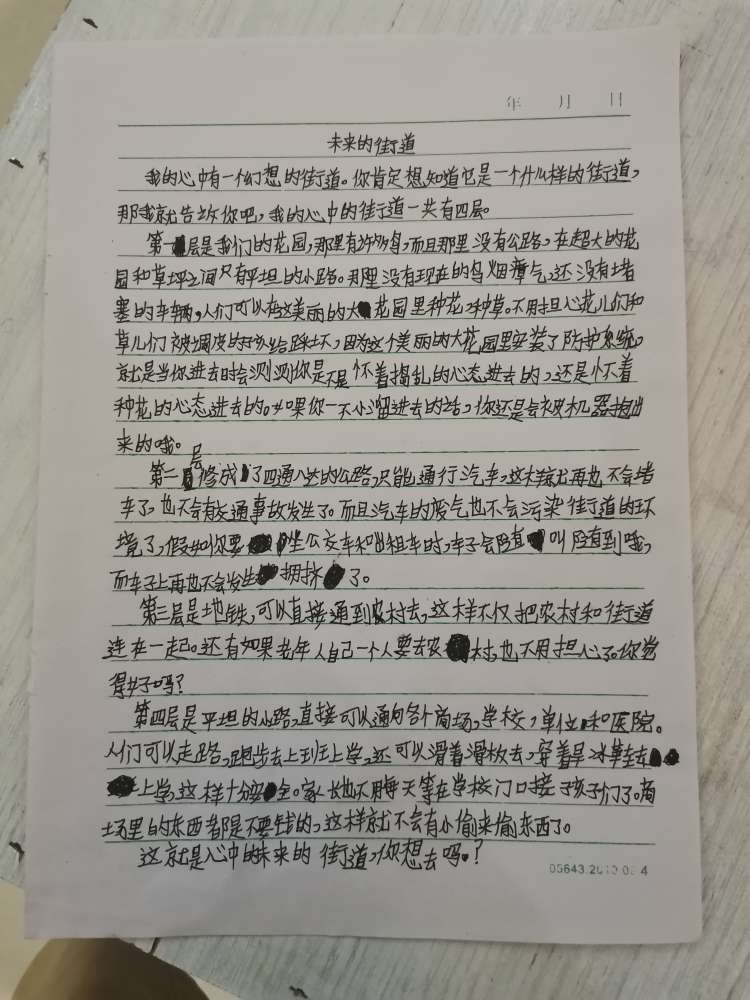 年 月 日
未来的街道
我的心中有一个幻想的街道。你肯定想知道它是一个什么样的街道,
那我就告诉你吧,我的心中的街道一共有四层。
第一层是我们的花园,那里有许多鸟,而且那里没有公路,在超大的花
园和草坪之间只有平坦的小路。那里没有现在的乌烟瘴气,还没有堵
塞的车辆,人们可以在这美丽的大花园里种花,种草。不用担心花儿们和
草儿们被调皮的孩子给踩坏,因为这个美丽的大花园里安装了防护系统。
就是当你进去时会测测你是不是怀着捣乱的心态进去的,还是怀着
种花的心态进去的。如果你一不小溜进去的话,你还是会被机器抱出
来的哦。
第二层修成了四通八达的公路,只能通行汽车,这样就再也不会堵
车了,也不会有交通事故发生了。而且汽车的废气也不会污染街道的环
境了,假如你要坐公交车和出租车时,车子会随叫随到哦,
而车子上再也不会发生拥挤了。
第三层是地铁,可以直接通到农村去,这样不仅把农村和街道
连在一起。还有如果老年人自己一个人要去农村,也不用担心了。你觉
得好吗?
第四层是平坦的小路,直接可以通向各个商场,学校,单位和医院。
人们可以走路,跑步去上班上学,还可以滑着滑板去,穿着旱冰鞋去
上学,这样十分安全。家长也不用每天等在学校门口接孩子们了。商
场里的东西都是不要钱的,这样就不会有小偷来偷东西了。
这就是心中的未来的街道,你想去吗。?